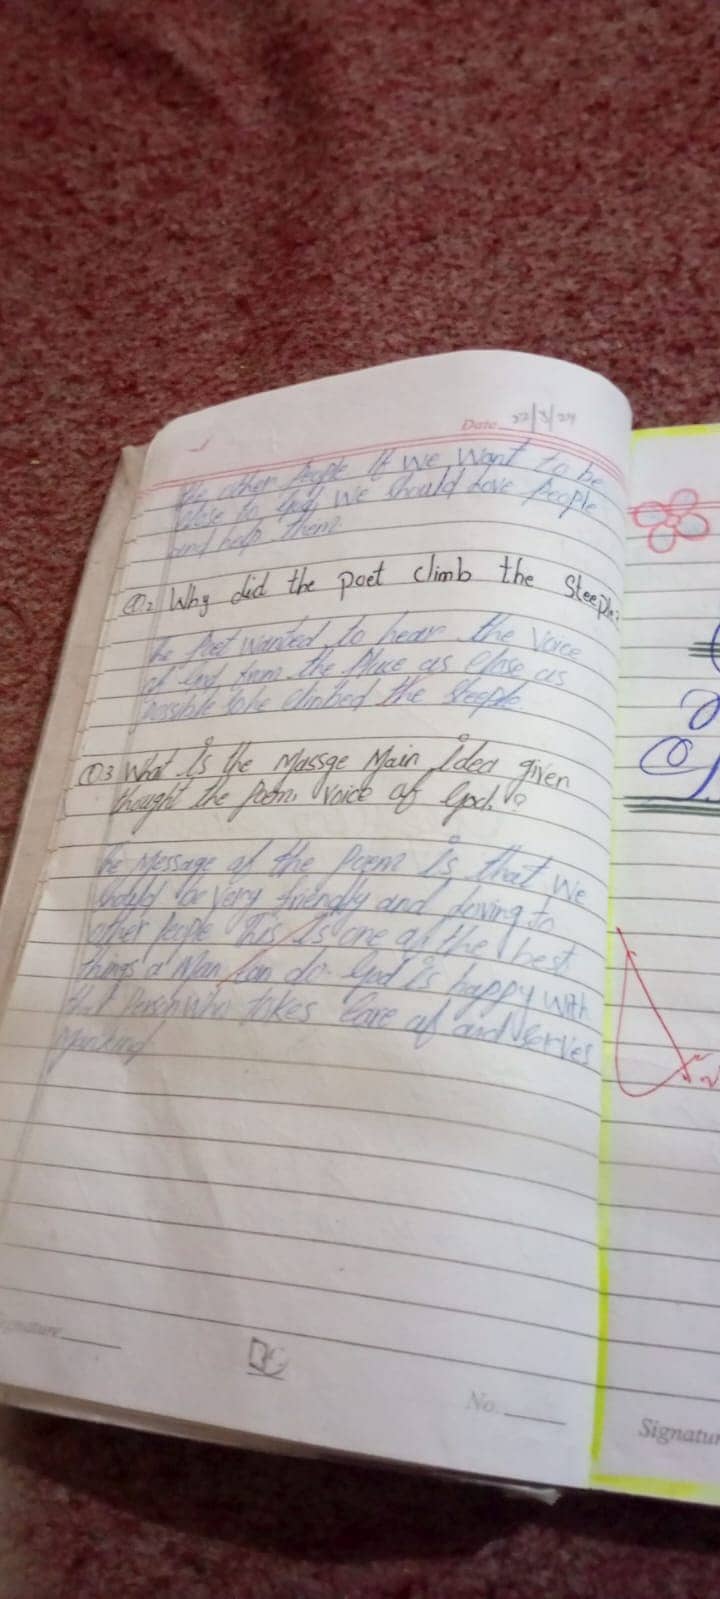 Date 22/3/24
the other people If we want to be
close to God, we should love people
and help them
Q2 Why did the poet climb the Steeple?
The Poet wanted to hear the Voice
of God from the Place as close as
possible so he climbed the steeple.
Q3 What Is the Massge Main idea given
thought the Poem. Voice of God.?
The Message of the Poem Is that we
should be very friendly and loving to
other people This Is one of the best
things a Man Can do. God is happy with
that Person who takes Care of and Serves
mankind
Signature
No.
Signatur